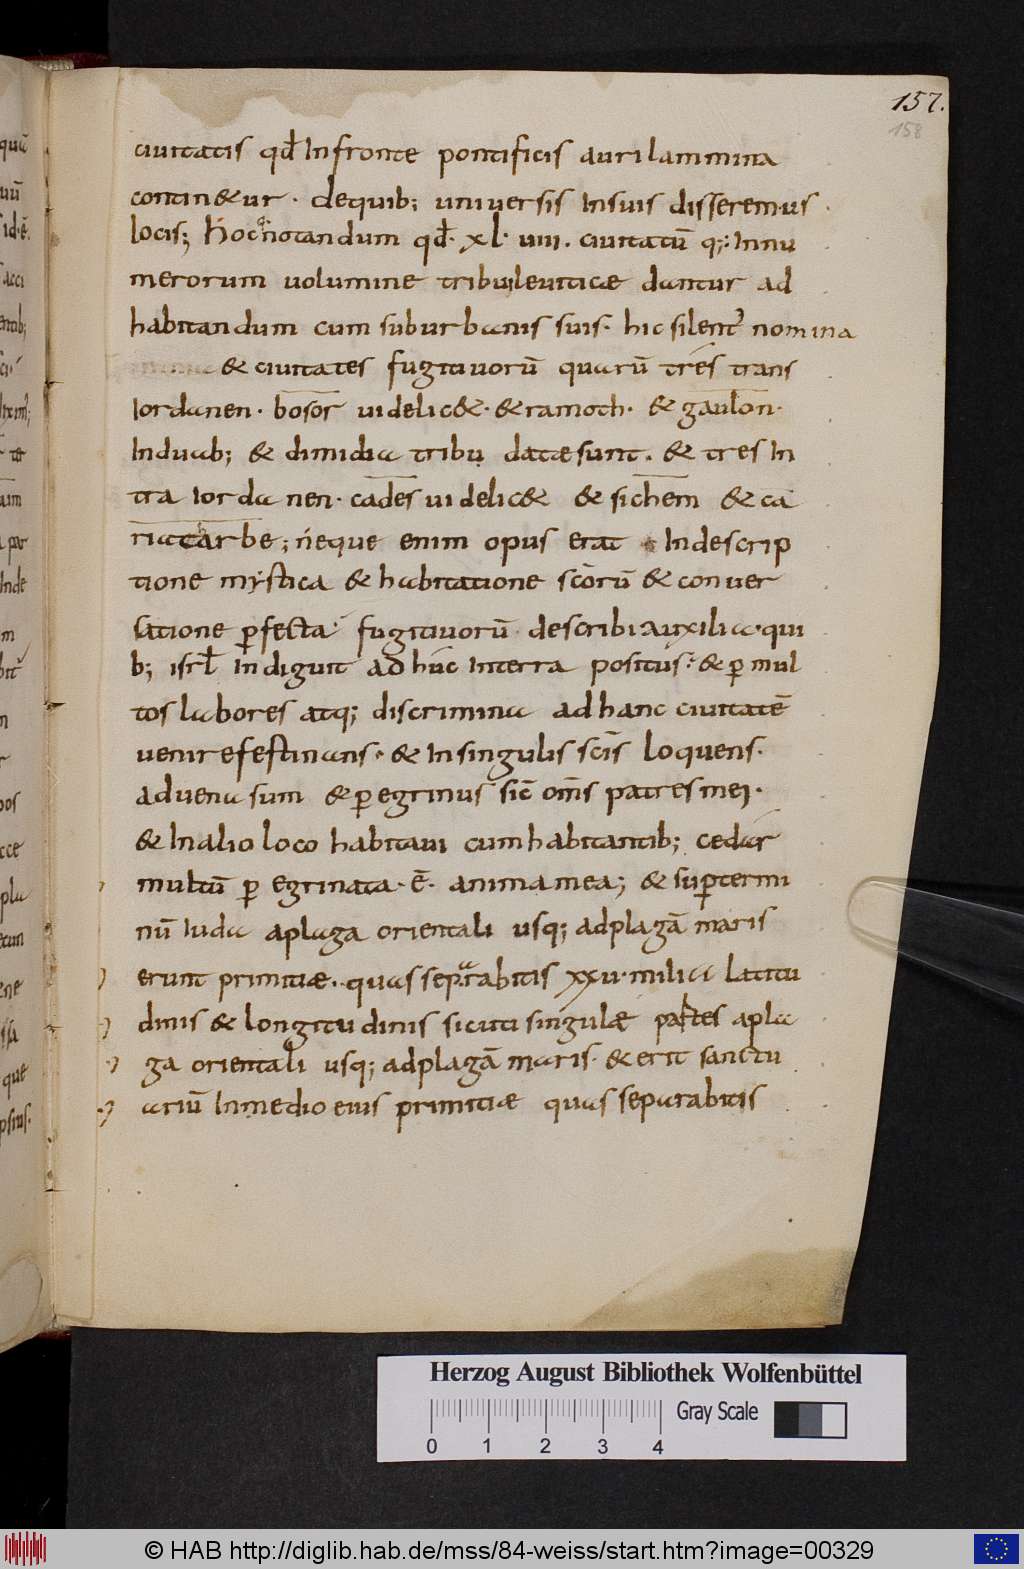 157.
158
ciuitatis qđ Infronte pontificis auri lammina
contin&ur · dequib; uniuersis Insuis disserem·us
locis; hoc notandum qđ· xl· uiii. ciuitatū q; Innu
merorum uolumine tribui leuiticæ dantur ad
habitandum cum suburbanis suis· hic silent̄ nomina
& ciuitates fugitiuorū quarū tres trans
Iordanen · bosor uidelic&· & ramoth· & gaulon·
Induab; & dimidia tribu datæ sunt. & tres In
tra Iordanen· cades uidelic& & sichem & ca
riatharbe; neque enim opus erat In descrip
tione mystica & habitatione scōrū & conuer
satione ꝑfecta fugitiuorū describi auxilia· qui
b; isrl̄ Indiguit adhuc Interra positus· & ꝑ mul
tos labores atq; discrimina ad hanc ciuitatē
uenire festinans· & Insingulis scīs loquens·
aduena sum & ꝑegrinus sic̄ om̄s patres mei·
& In alio loco habitaui cum habitantib; cedar
multū ꝑ egrinata· ē· anima mea; & sup termi
nū Iuda aplaga orientali usq; adplagā maris
erunt primitiæ· quas separabitis xxu· milia latitu
dinis & longitudinis sicuti singulæ partes apla
ga orientali usq; adplagā maris· & erit sanctu
ariū Inmedio eius primitiæ quas separabitis
Herzog August Bibliothek Wolfenbüttel
Gray Scale
0 1 2 3 4
© HAB http://diglib.hab.de/mss/84-weiss/start.htm?image=00329